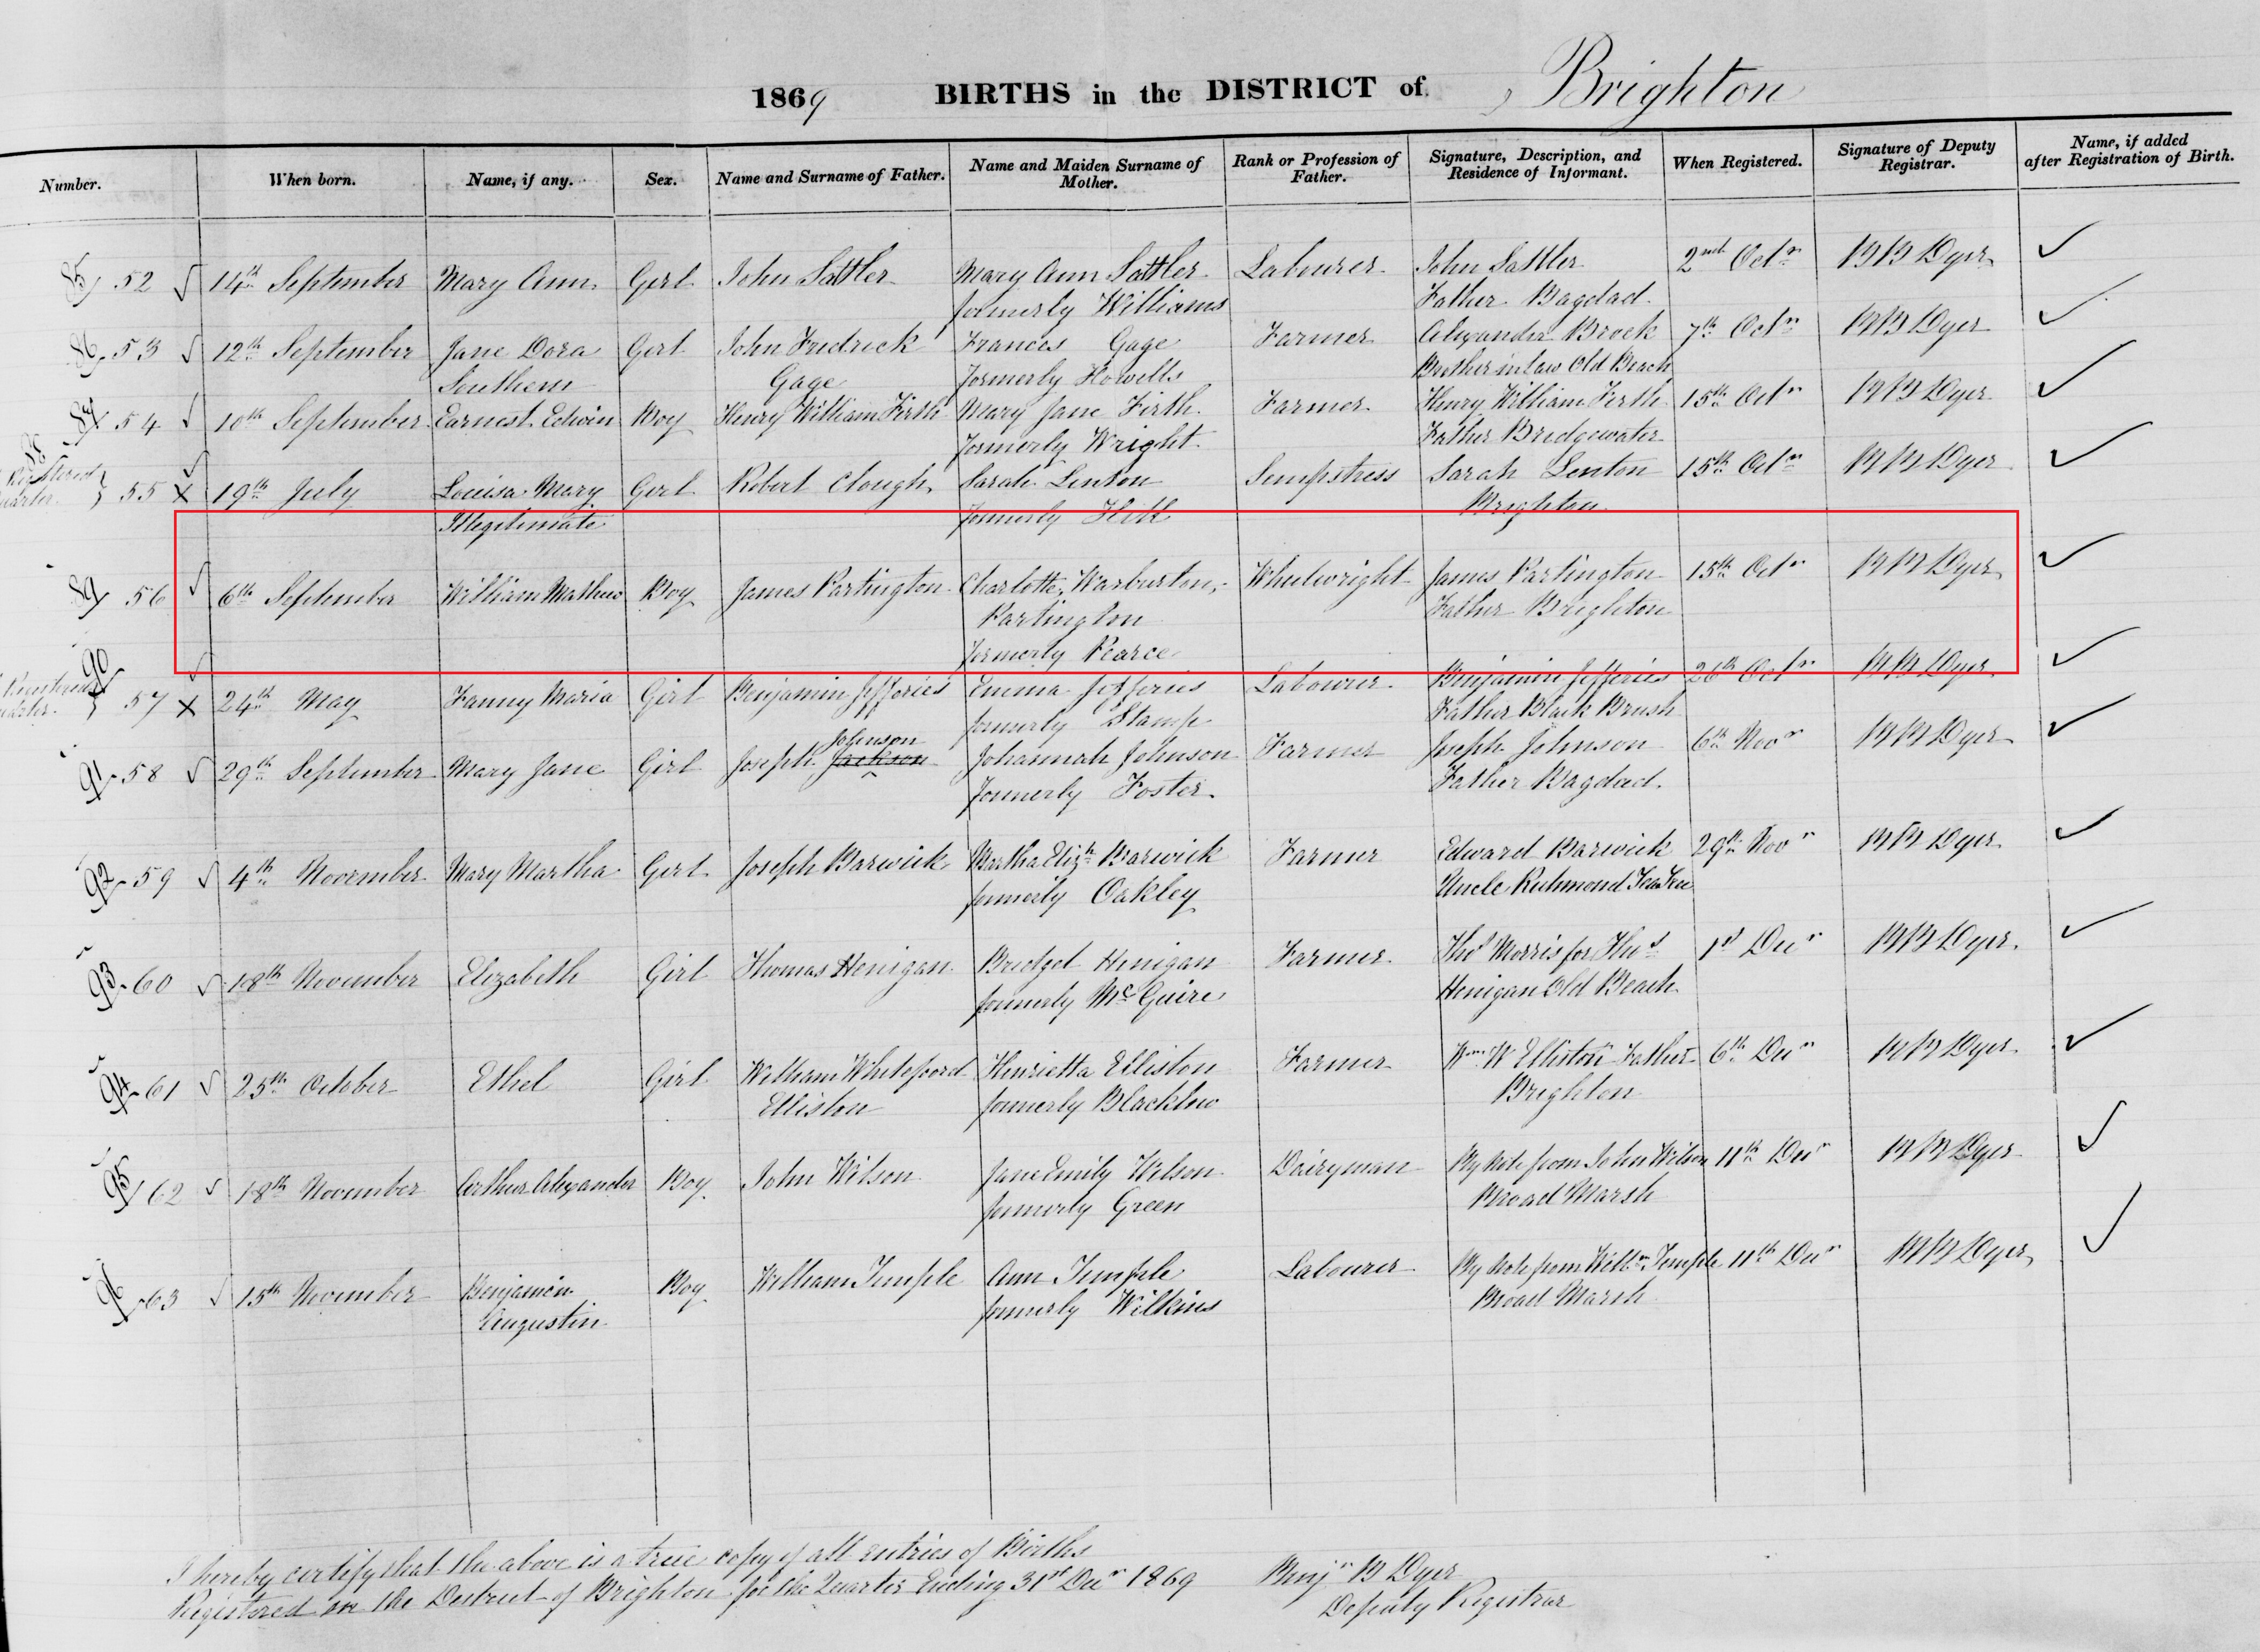 1869 BIRTHS in the DISTRICT of Brighton
Number. When born. Name, if any. Sex. Name and Surname of Father. Name and Maiden Surname of Mother. Rank or Profession of Father. Signature, Description, and Residence of Informant. When Registered. Signature of Deputy Registrar. Name, if added after Registration of Birth.
85 52 14th September Mary Ann Girl John Sattler Mary Ann Sattler Labourer John Sattler 2nd Octr BB Dyer
formerly Williams Father Bagdad
86 53 12th September Jane Dora Girl John Fredrick Frances Gage Farmer Alexander Brock 7th Octr BB Dyer
Southern Gage formerly Howells Brother in law Old Beach
87 54 10th September Earnest Edwin Boy Henry William Firth Mary Jane Firth Farmer Henry William Firth 15th Octr BB Dyer
formerly Wright Father Bridgewater
88
55 19th July Louisa Mary Girl Robert Clough Sarah Lenton Sempstress Sarah Lenton 15th Octr BB Dyer
Illegitimate formerly Brighton
89 56 6th September William Mathew Boy James Partington Charlotte Warburton Wheelwright James Partington 15th Octr BB Dyer
Partington Father Brighton
formerly Pearce
90
57 24th May Fanny Maria Girl Benjamin Jefferies Emma Jefferies Labourer Benjamin Jefferies 26th Octr BB Dyer
formerly Stamp Father Black Brush
Johnson
91 58 29th September Mary Jane Girl Joseph Jackson Johannah Johnson Farmer Joseph Johnson 6th Novr BB Dyer
formerly Foster Father Bagdad
92 59 4th November Mary Martha Girl Joseph Barwick Martha Elizth Barwick Farmer Edward Barwick 29th Novr BB Dyer
formerly Oakley Uncle Richmond Tea Tree
93 60 18th November Elizabeth Girl Thomas Henigan Bridget Henigan Farmer Thos Morris for Thos 1st Decr BB Dyer
formerly McGuire Henigan Old Beach
94 61 25th October Ethel Girl William Whiteford Henrietta Elliston Farmer Wm W Elliston Father 6th Decr BB Dyer
Elliston formerly Blacklow Brighton
95 62 18th November Arthur Alexander Boy John Wilson Jane Emily Wilson Dairyman By Note from John Wilson 11th Decr BB Dyer
formerly Green Broad Marsh
96 63 15th November Benjamin Boy William Temple Ann Temple Labourer By Note from Willm Temple 11th Decr BB Dyer
Augustin formerly Wilkins Broad Marsh
I hereby certify that the above is a true copy of all entries of Births
Registered in the District of Brighton for the Quarter Ending 31st Decr 1869
Benjn B Dyer
Deputy Registrar